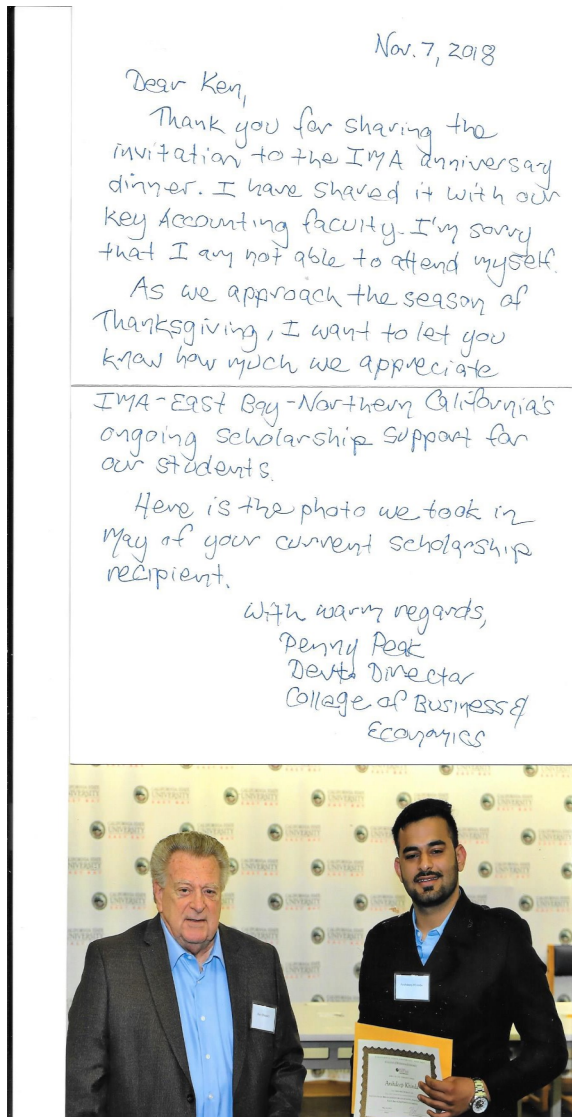 Nov. 7, 2018
Dear Ken,
Thank you for sharing the
invitation to the IMA anniversary
dinner. I have shared it with our
key Accounting faculty. I'm sorry
that I am not able to attend myself.
As we approach the season of
Thanksgiving, I want to let you
know how much we appreciate
IMA-East Bay-Northern California's
ongoing scholarship support for
our students.
Here is the photo we took in
May of your current scholarship
recipient.
With warm regards,
Penny Peak
Director
College of Business &
Economics
CALIFORNIA STATE
UNIVERSITY
EAST BAY